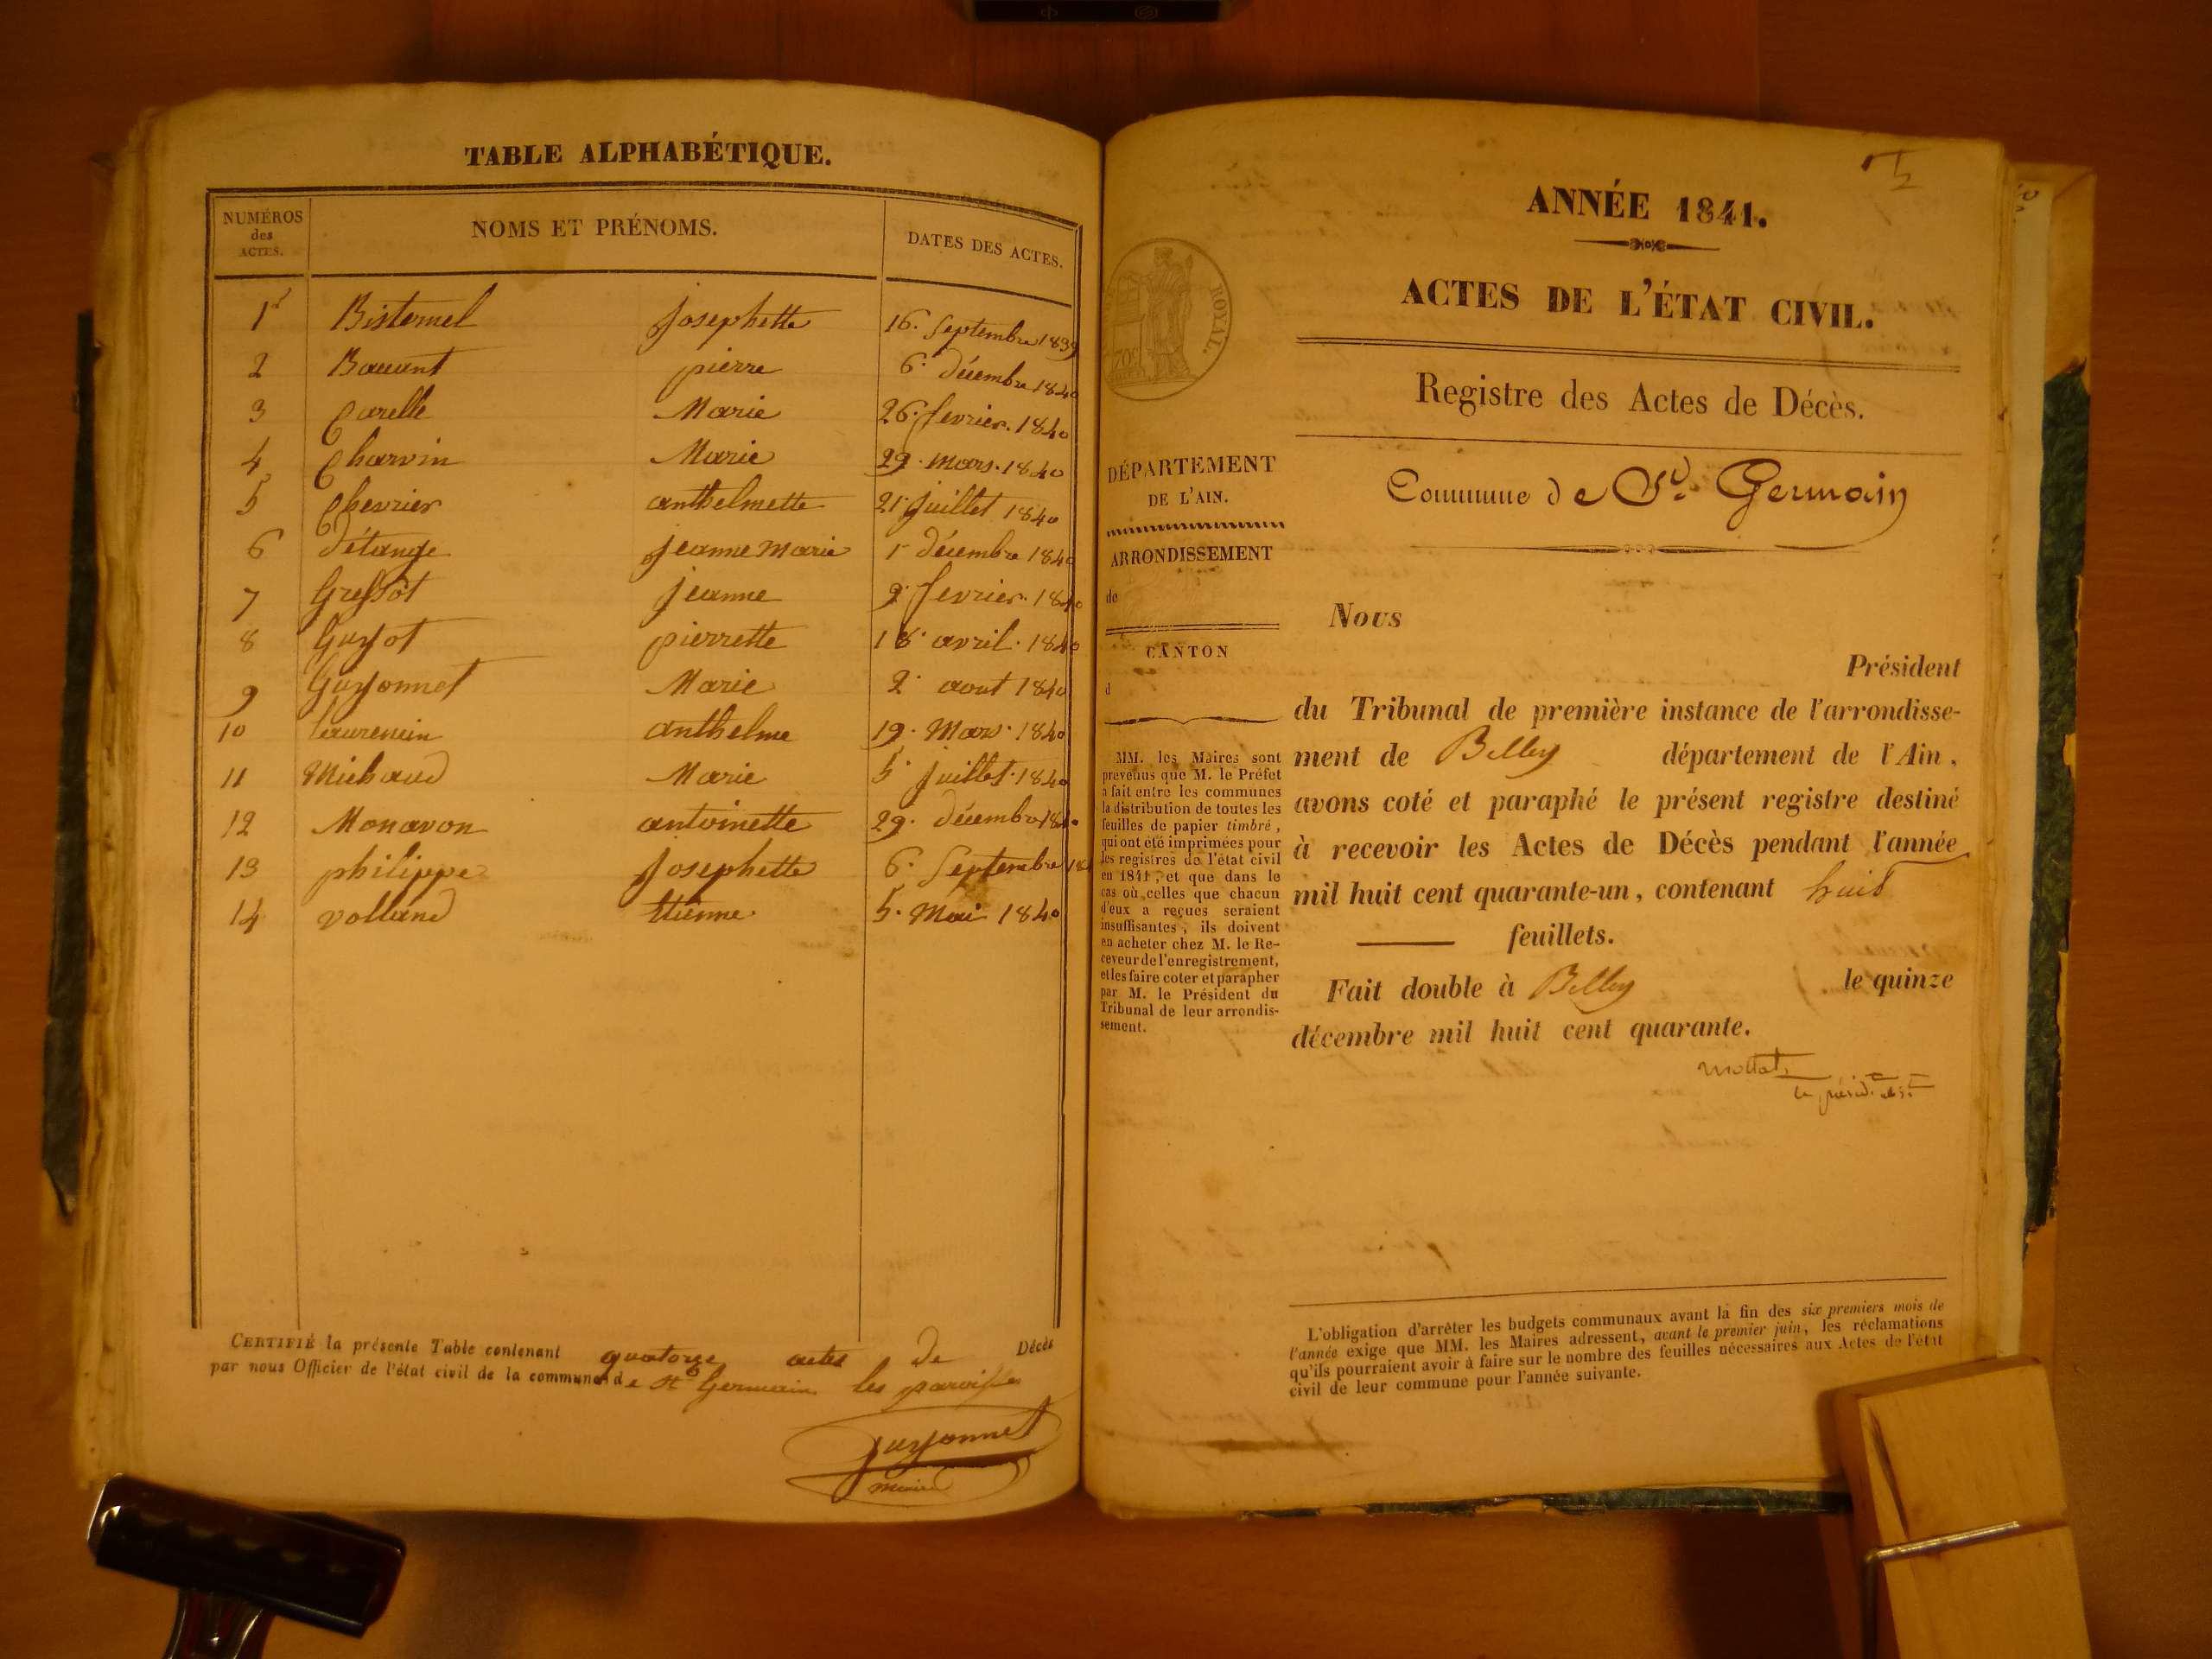 TABLE ALPHABÉTIQUE.
NUMÉROS des ACTES. NOMS ET PRÉNOMS. DATES DES ACTES.
1r Bisternel Josephette 16. Septembre 1839
2 pierre 6. décembre 1840
3 Carelle Marie 26. fevrier. 1840
4 Charvin Marie 29. mars. 1840
5 Chevrier anthelmette 21. juillet 1840
6 détange jeanne Marie 1r décembre 1840
7 Greffot jeanne 9. fevrier. 1840
8 Guyot pierrette 18. avril. 1840
9 Guyonnet Marie 2. aout 1840
10 laurencin anthelme 19. Mars. 1840
11 Michaud Marie 5. juillet. 1840
12 Monavon antoinette 29. décembre 1840
13 philippe Josephette 6. Septembre 18
14 volland Etienne. 5. Mai 1840
CERTIFIÉ la présente Table contenant quatorze actes de Décès
par nous Officier de l'état civil de la commune de St Germain les paroisses
guyonnet
maire
ANNÉE 1841.
ACTES DE L'ÉTAT CIVIL.
Registre des Actes de Décès.
Commune de St. Germain
ROYAL.
70C
DÉPARTEMENT
DE L'AIN.
ARRONDISSEMENT
de
CANTON
d
MM. les Maires sont
prévenus que M. le Préfet
a fait entre les communes
la distribution de toutes les
feuilles de papier timbré,
qui ont été imprimées pour
les registres de l'état civil
en 1841, et que dans le
cas où celles que chacun
d'eux a reçues seraient
insuffisantes, ils doivent
en acheter chez M. le Re-
ceveur de l'enregistrement,
et les faire coter et parapher
par M. le Président du
Tribunal de leur arrondis-
sement.
Nous
Président
du Tribunal de première instance de l'arrondisse-
ment de Belley département de l'Ain,
avons coté et paraphé le présent registre destiné
à recevoir les Actes de Décès pendant l'année
mil huit cent quarante-un, contenant huit
feuillets.
Fait double à Belley le quinze
décembre mil huit cent quarante.
L'obligation d'arrêter les budgets communaux avant la fin des six premiers mois de
l'année exige que MM. les Maires adressent, avant le premier juin, les réclamations
qu'ils pourraient avoir à faire sur le nombre des feuilles nécessaires aux Actes de l'état
civil de leur commune pour l'année suivante.